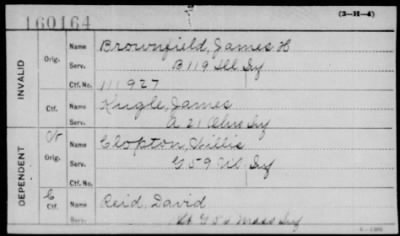 160164
(3-H-4)
INVALID
Orig.
Name Brownfield, James H
Serv. B 119 Ill Inf
Ctf. No. 111927
Ctf.
Name Kugle, James
Serv. A 21 Ohio Inf
DEPENDENT
W
Orig.
Name Clopton, Willis
Serv. G 59 Ill Inf
Ctf. No.
C
Ctf.
Name Reid, David
Serv. 56 Mass Inf